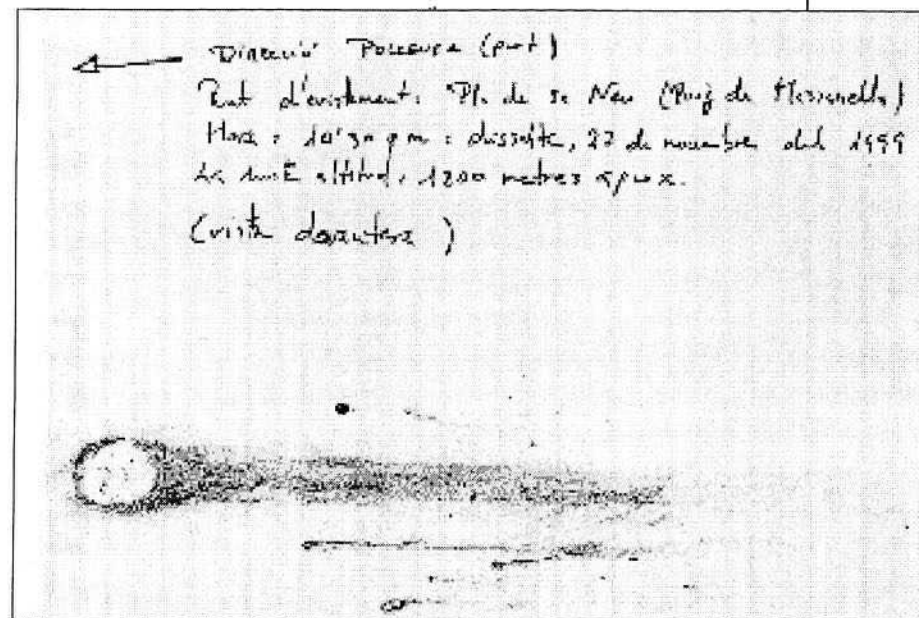 Direcció Pollença (port)
Punt d'avistament: Pla de sa Neu (Puig de Massanella)
Hora: 10'30 p m: dissabte, 27 de novembre del 1999
altitud: 1200 metres aprox.
(vista davantera)